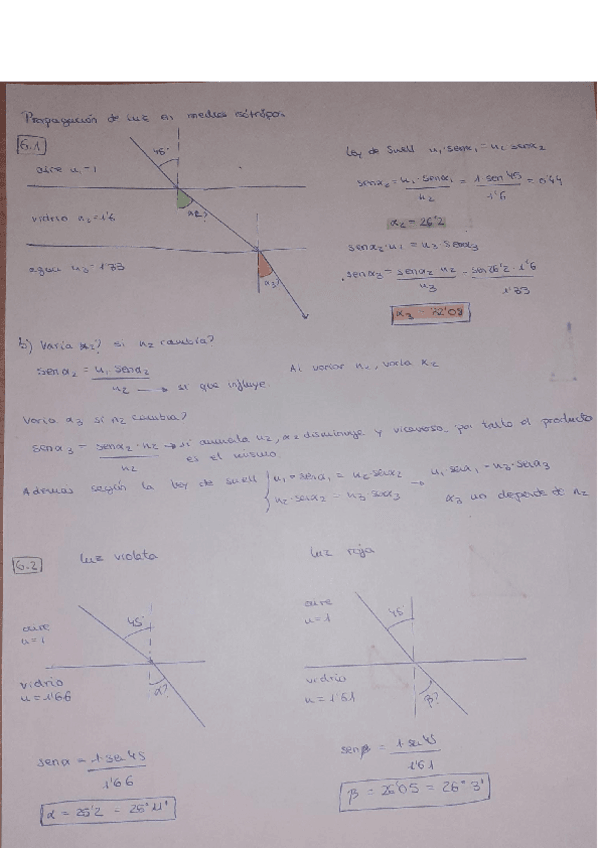 Propagación de luz en medios isótropos
6.1
aire n₁ = 1
45°
vidrio n₂ = 1'6
α₂?
agua n₃ = 1'33
α₃?
Ley de Snell n₁·senα₁ = n₂ senα₂
senα₂ = n₁·senα₁ / n₂ = 1 sen 45 / 1'6 = 0'44
α₂ = 26'2
senα₂·n₂ = n₃ senα₃
senα₃ = senα₂ n₂ / n₃ = sen 26'2 · 1'6 / 1'33
α₃ =
b) Varía α₂? si n₂ cambia?
senα₂ = n₁ senα₂ / n₂ → si que influye.
Al variar n₂, varía α₂
Varía α₃ si n₂ cambia?
senα₃ = senα₂·n₂ / n₃ → si aumenta n₂, α₂ disminuye y viceversa, por tanto el producto
es el mismo.
Además según la ley de snell { n₁ · senα₁ = n₂ senα₂ → n₁ senα₁ = n₃·senα₃
n₂·senα₂ = n₃ senα₃ α₃ no depende de n₂
6.2 luz violeta
luz roja
aire
n = 1
45°
vidrio
n = 1'66
α?
aire
n = 1
45°
vidrio
n = 1'61
β?
senα = 1·sen 45 / 1'66
α = 25'2 = 25° 11'
senβ = 1·sen 45 / 1'61
β = 26'05 = 26° 3'